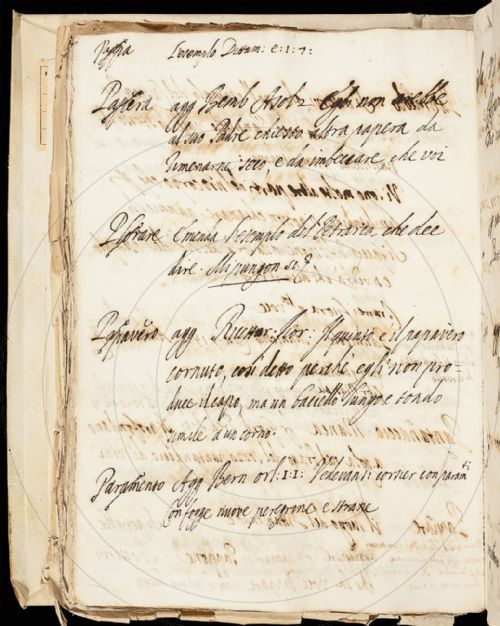 l'esempio Dittam: c: 1: 7:
agg Bemb Asol: 2 Egli non
al suo Padre chiesto altra papera da
menarne seco, e da imbeccare, che voi
emenda l'esempio del Petrarca che dee
dire. Mi pungon sì
Papavero agg Ricettar: fior: Il quinto è il papavero
cornuto, così detto perchè egli non pro-
duce il capo, ma un baccello lungo e tondo
simile a un corno.
Paramento Agg Bern orl: 1: 1: Vedevansi corsier con paramti
con fogge nuove peregrine e strane